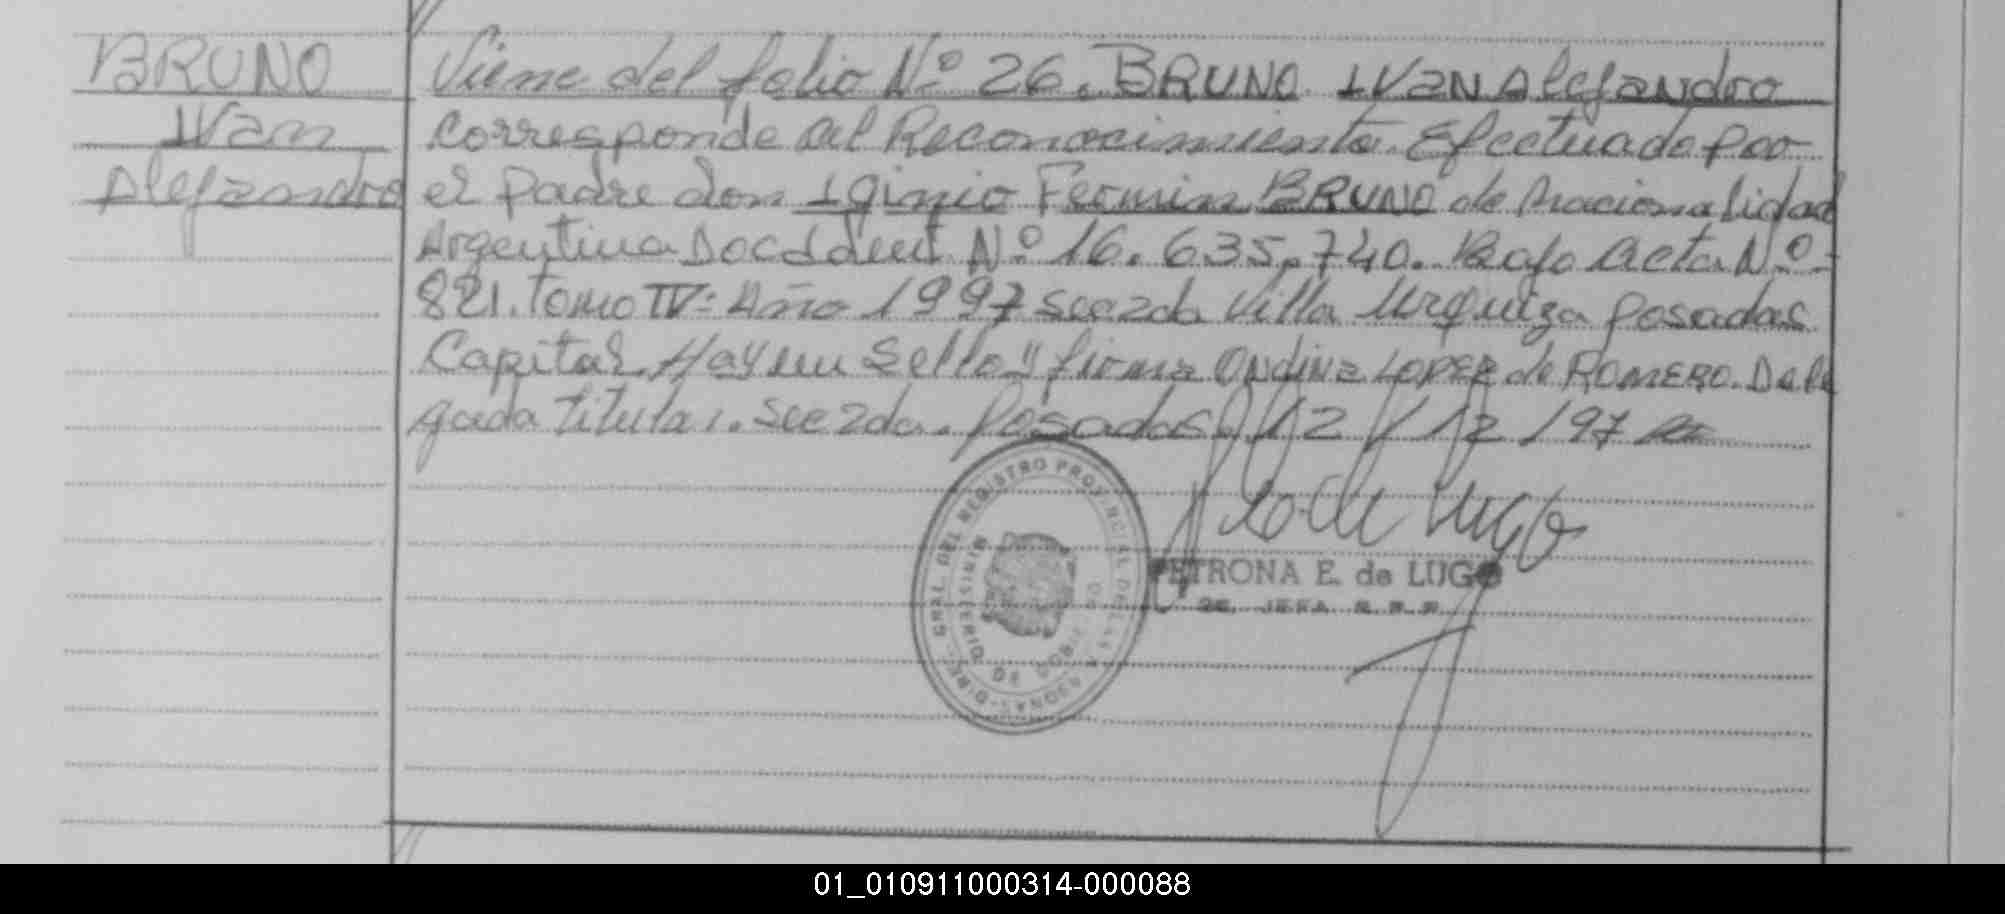 BRUNO
Ivan
Alejandro
Viene del folio Nº 26. BRUNO IVAN Alejandro
Corresponde al Reconocimiento. Efectuado por
el padre don Iginio Fermin BRUNO de Nacionalidad
Argentina Doc Ident Nº 16.635.740. Bajo Acta Nº
821. Tomo IV: Año 1997 Secc 2da Villa Urquiza Posadas
Capital. Hay un Sello y firma Ondina LOPEZ de ROMERO. Dele
gada titular. Secc 2da. Posadas, 12/12/97
DIREC. GRAL. DEL REGISTRO PROVINCIAL DE LAS PERSONAS
MINISTERIO DE GOBIERNO
PETRONA E. de LUGO
JEFA R. P. P.
01_010911000314-000088